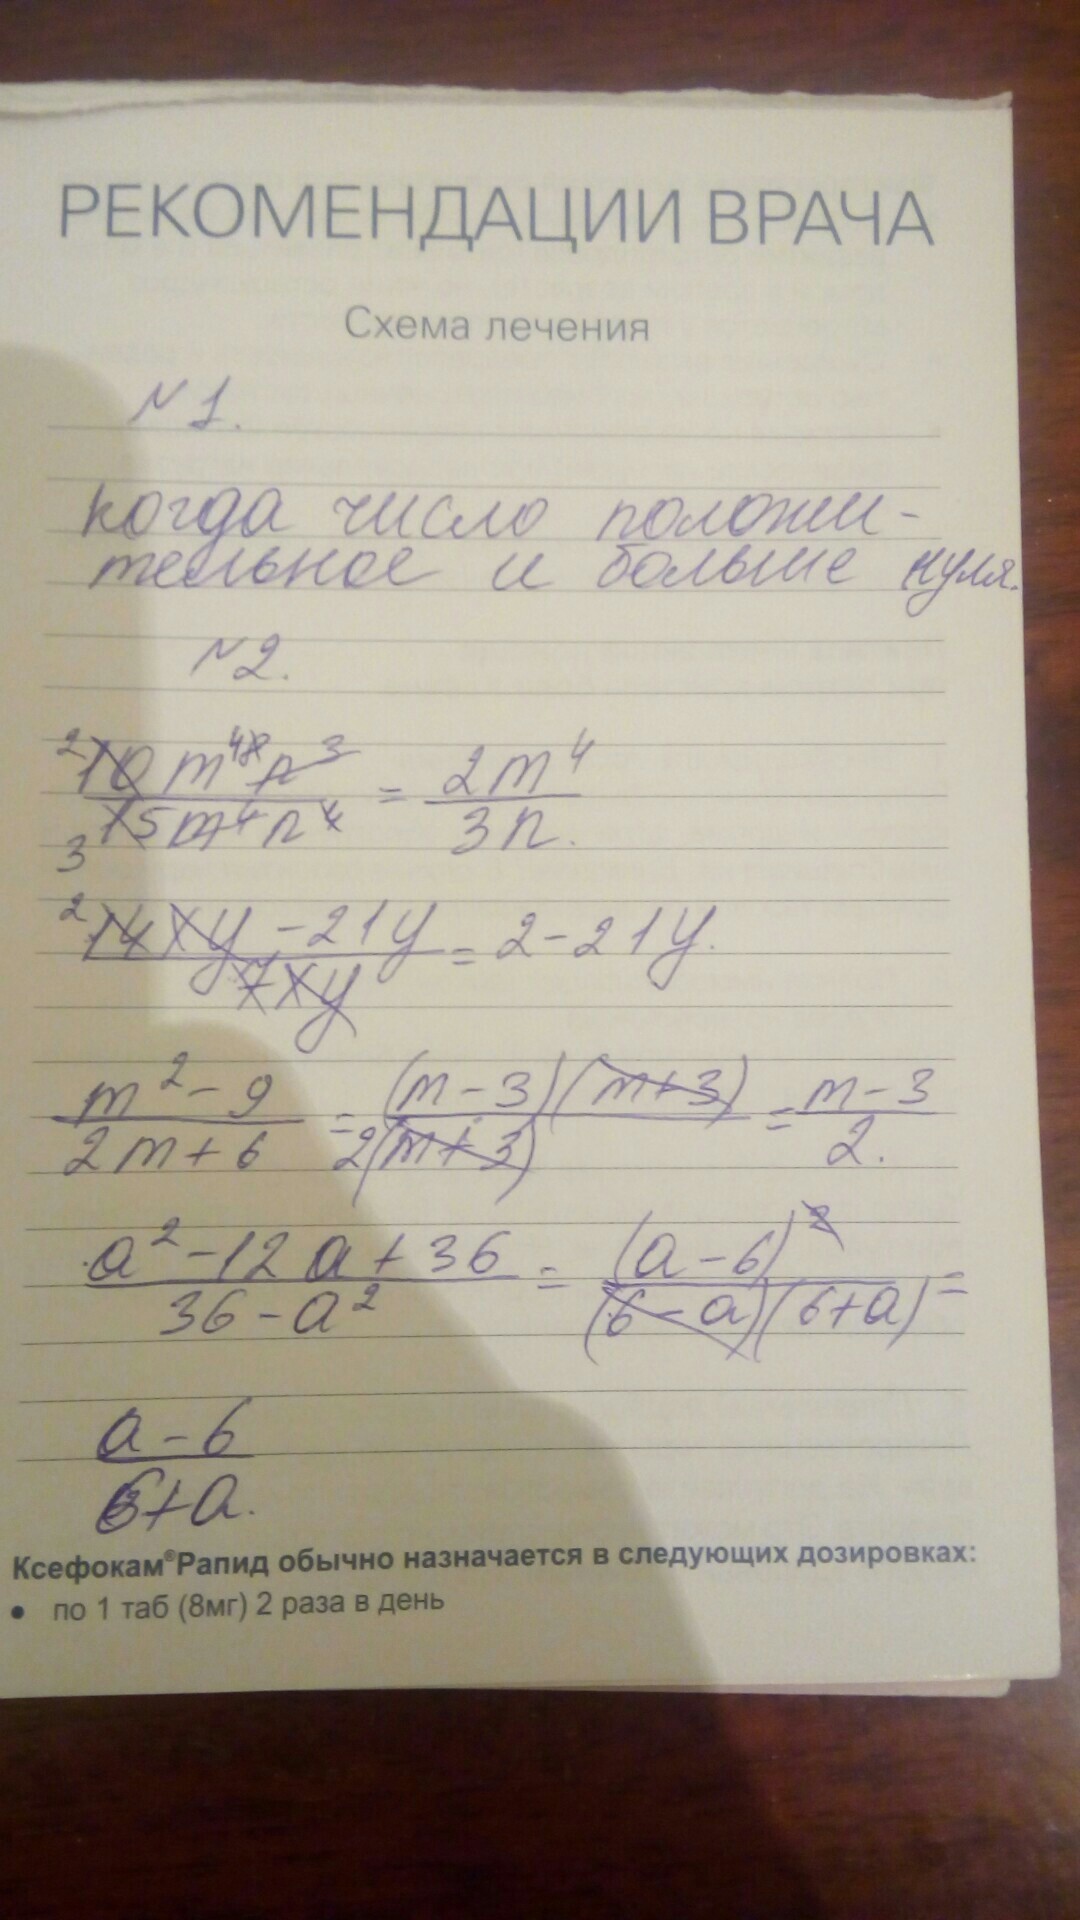 РЕКОМЕНДАЦИИ ВРАЧА
Схема лечения
№1.
когда число положи-
тельное и больше нуля.
№2.
10m⁸n³/15m⁴n⁴ = 2m⁴/3n.
14xy-21y/7xy = 2-21y.
m²-9/2m+6 = (m-3)(m+3)/2(m+3) = m-3/2.
a²-12a+36/36-a² = (a-6)²/(6-a)(6+a) =
a-6/6+a.
Ксефокам®Рапид обычно назначается в следующих дозировках:
• по 1 таб (8мг) 2 раза в день